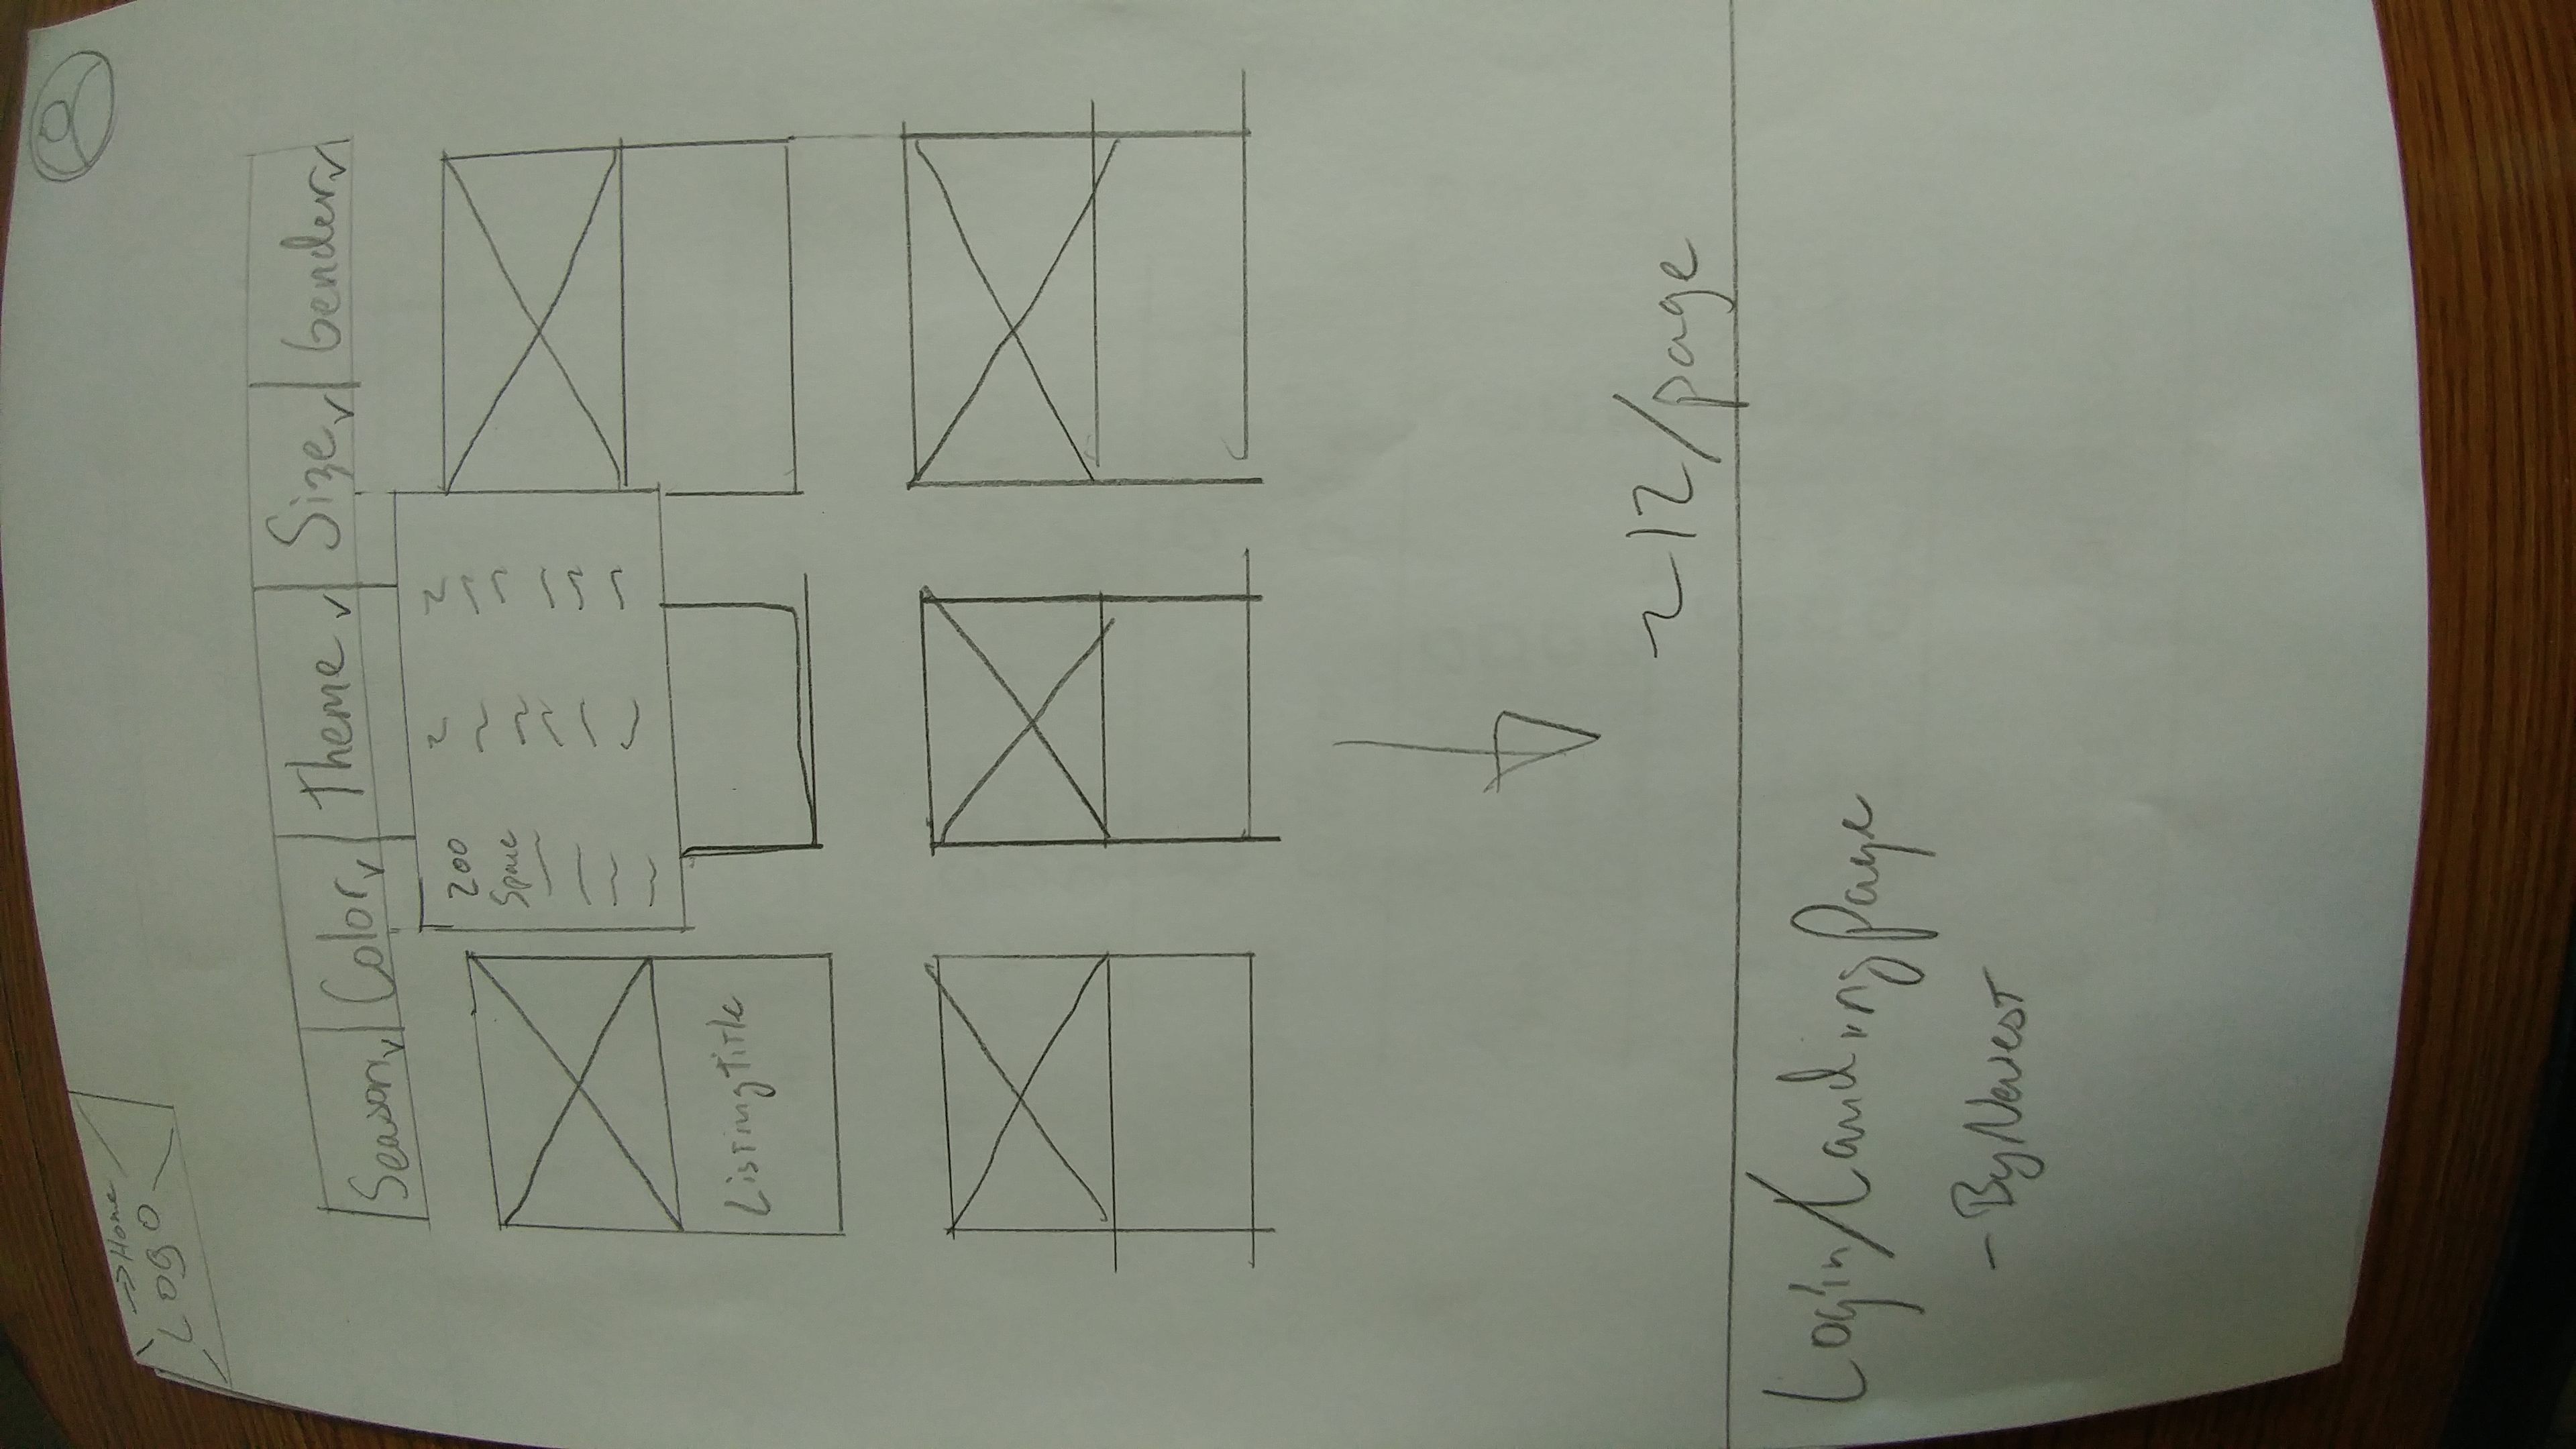 →Home
Logo
Season Color Theme Size Gender
Zoo
Space
Listing Title
~12/page
Login/Landing Page
- By Newest